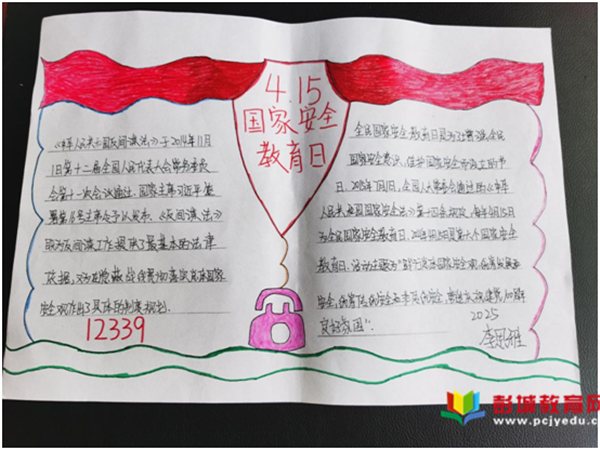 4.15
国家安全
教育日
《中华人民共和国反间谍法》于2014年11月
1日第十二届全国人民代表大会常务委员
会第十一次会议通过,国家主席习近平签
署第16号主席令予以公布.《反间谍法》
为反间谍工作提供了最基本的法律
依据,对 贯彻落实总体国家
安全观作出了具体的制度规划.
12339
全民国家安全教育日是为了增强全民
国家安全意识,维护国家安全而设立的节
日,2015年7月1日,全国人大常委会通过的《中华
人民共和国国家安全法》第十四条规定,每年4月15日
为全民国家安全教育日, 4月15日是第十个国家安全
教育日,活动主题为" 总体国家安全观,
良好氛围".
2025
彭城教育网
www.pcjyedu.com